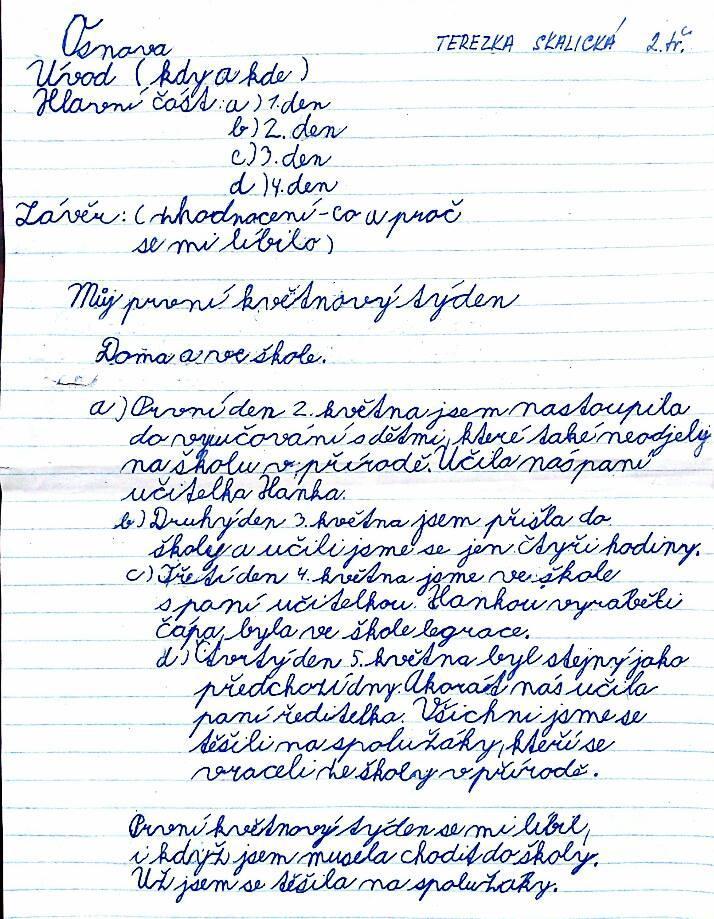 Osnova
TEREZKA SKALICKÁ 2.tř.
Úvod (kdy a kde)
Hlavní část: a) 1. den
b) 2. den
c) 3. den
d) 4. den
Závěr: (zhodnocení - co a proč
se mi líbilo)
Můj první květnový týden
Doma a ve škole.
a) První den 2. května jsem nastoupila
do vyučování s dětmi, které také neodjely
na školu v přírodě. Učila nás paní
učitelka Hanka.
b) Druhý den 3. května jsem přišla do
školy a učili jsme se jen čtyři hodiny.
c) Třetí den 4. května jsme ve škole
s paní učitelkou Hankou vyráběli
čápa, byla ve škole legrace.
d) Čtvrtý den 5. května byl stejný jako
předchozí dny. Akorát nás učila
paní ředitelka. Všichni jsme se
těšili na spolužáky, kteří se
vraceli ze školy v přírodě.
První květnový týden se mi líbil,
i když jsem musela chodit do školy.
Už jsem se těšila na spolužáky.